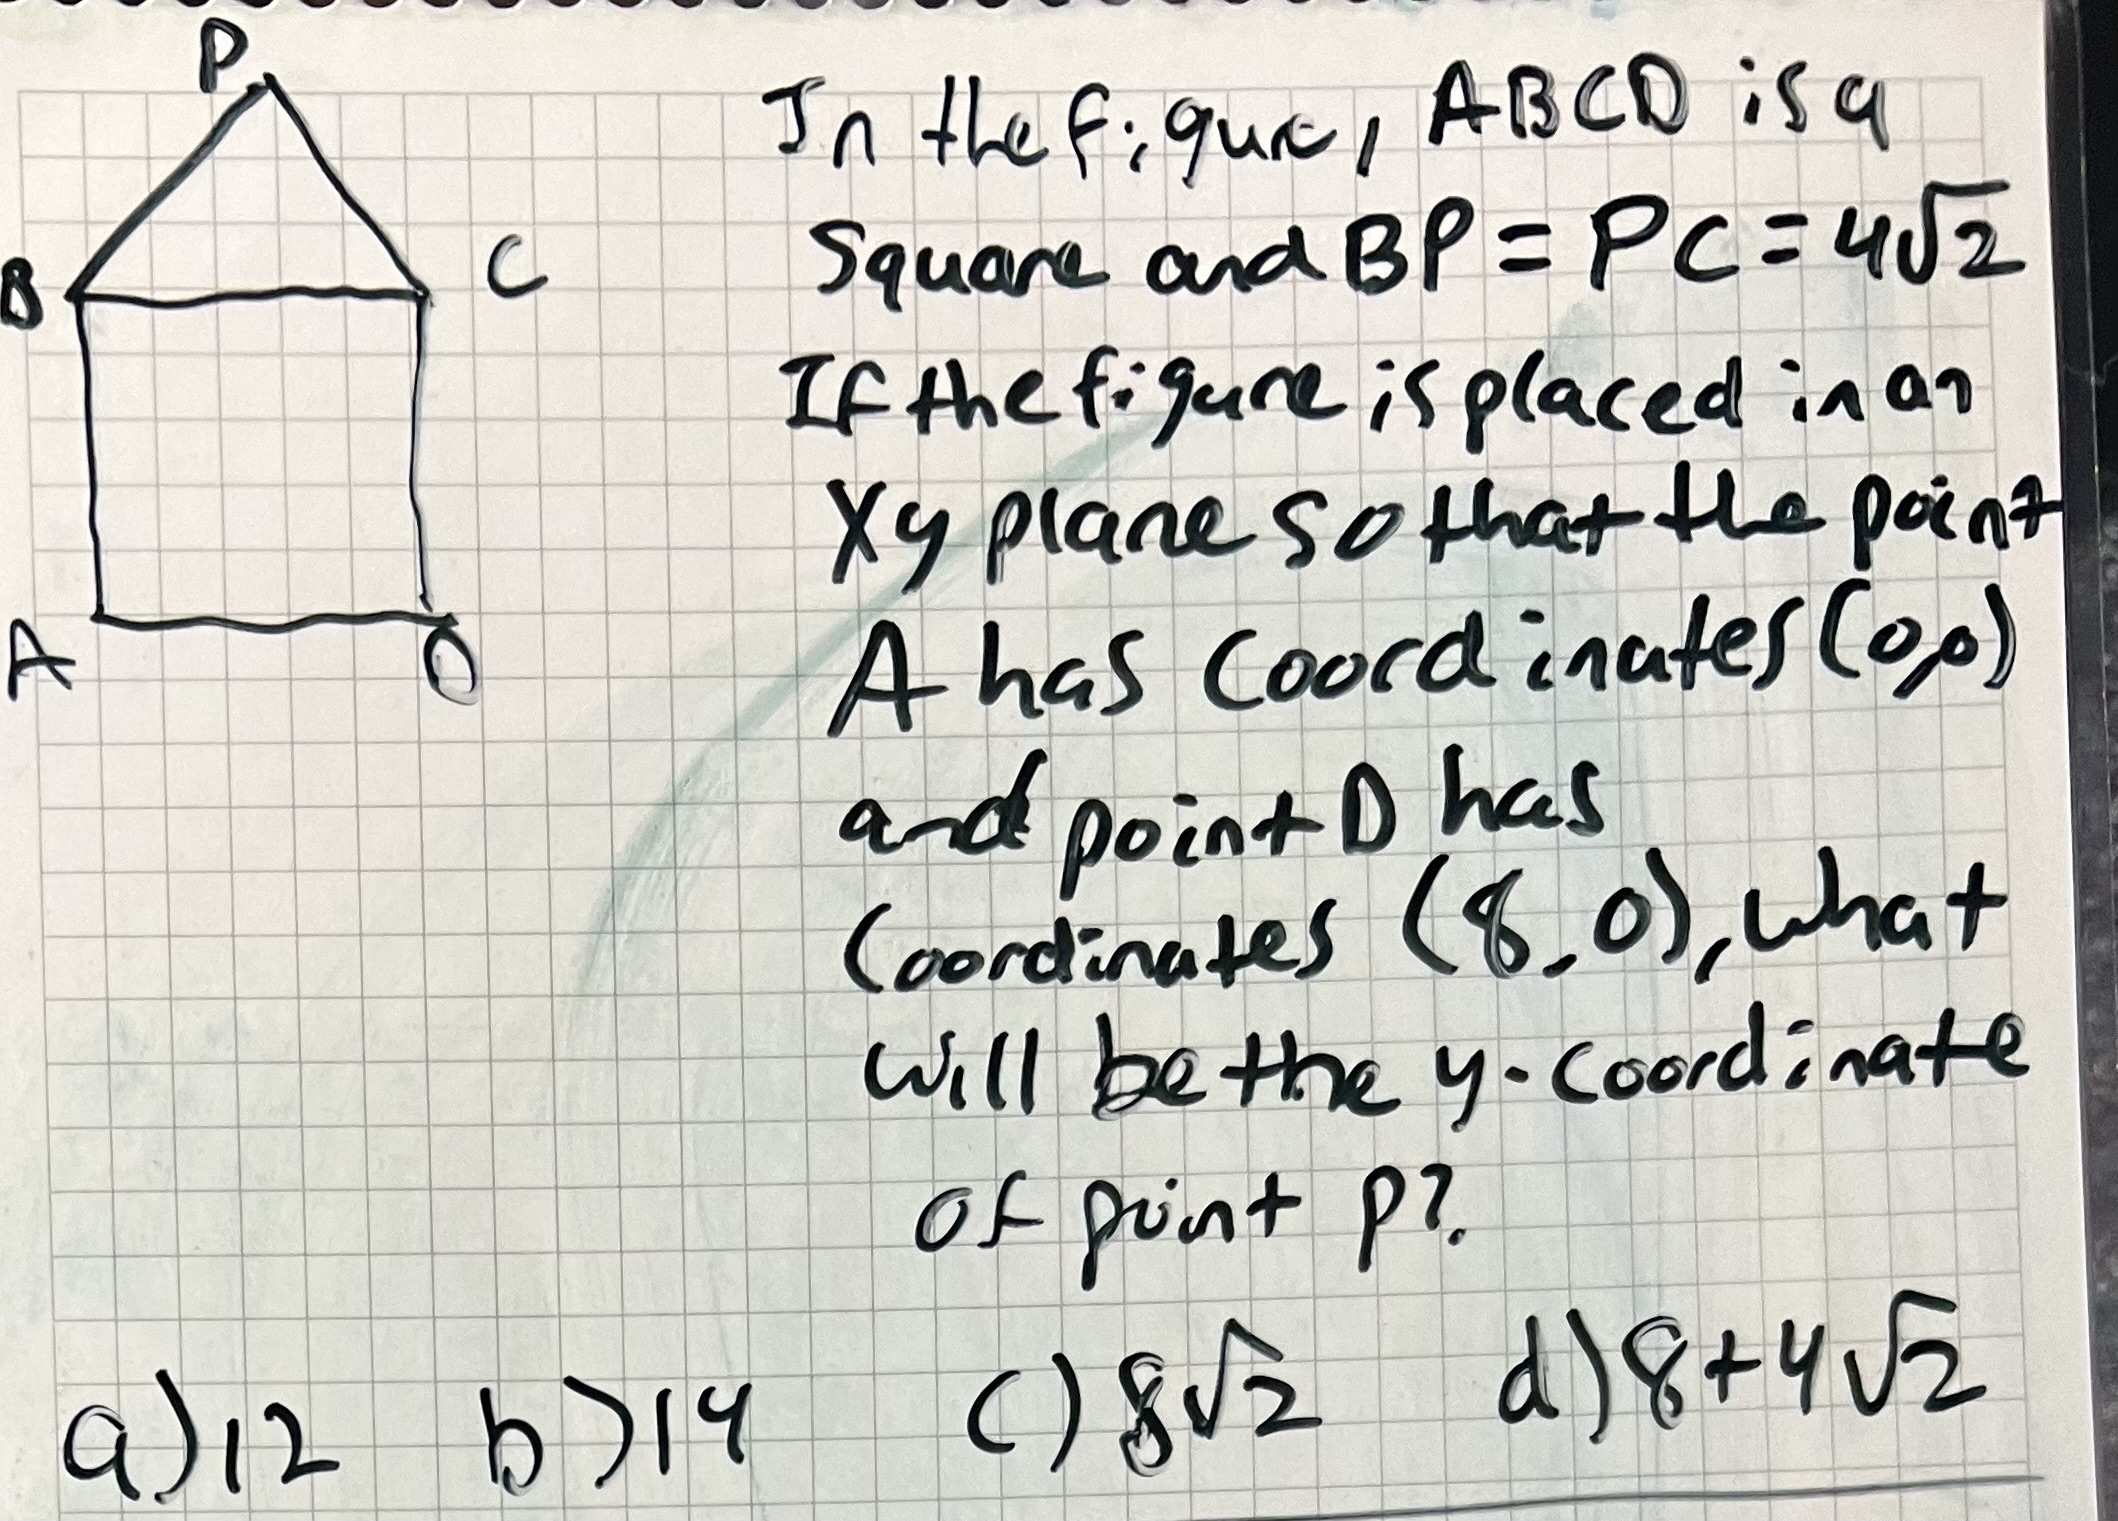 P
B
C
A
D
In the figure, ABCD is a
Square and BP = PC = 4√2
If the figure is placed in an
Xy plane so that the point
A has coordinates (0,0)
and point D has
Coordinates (8,0), what
will be the y-coordinate
of point P?.
a) 12 b) 14 c) 8√2 d) 8+4√2